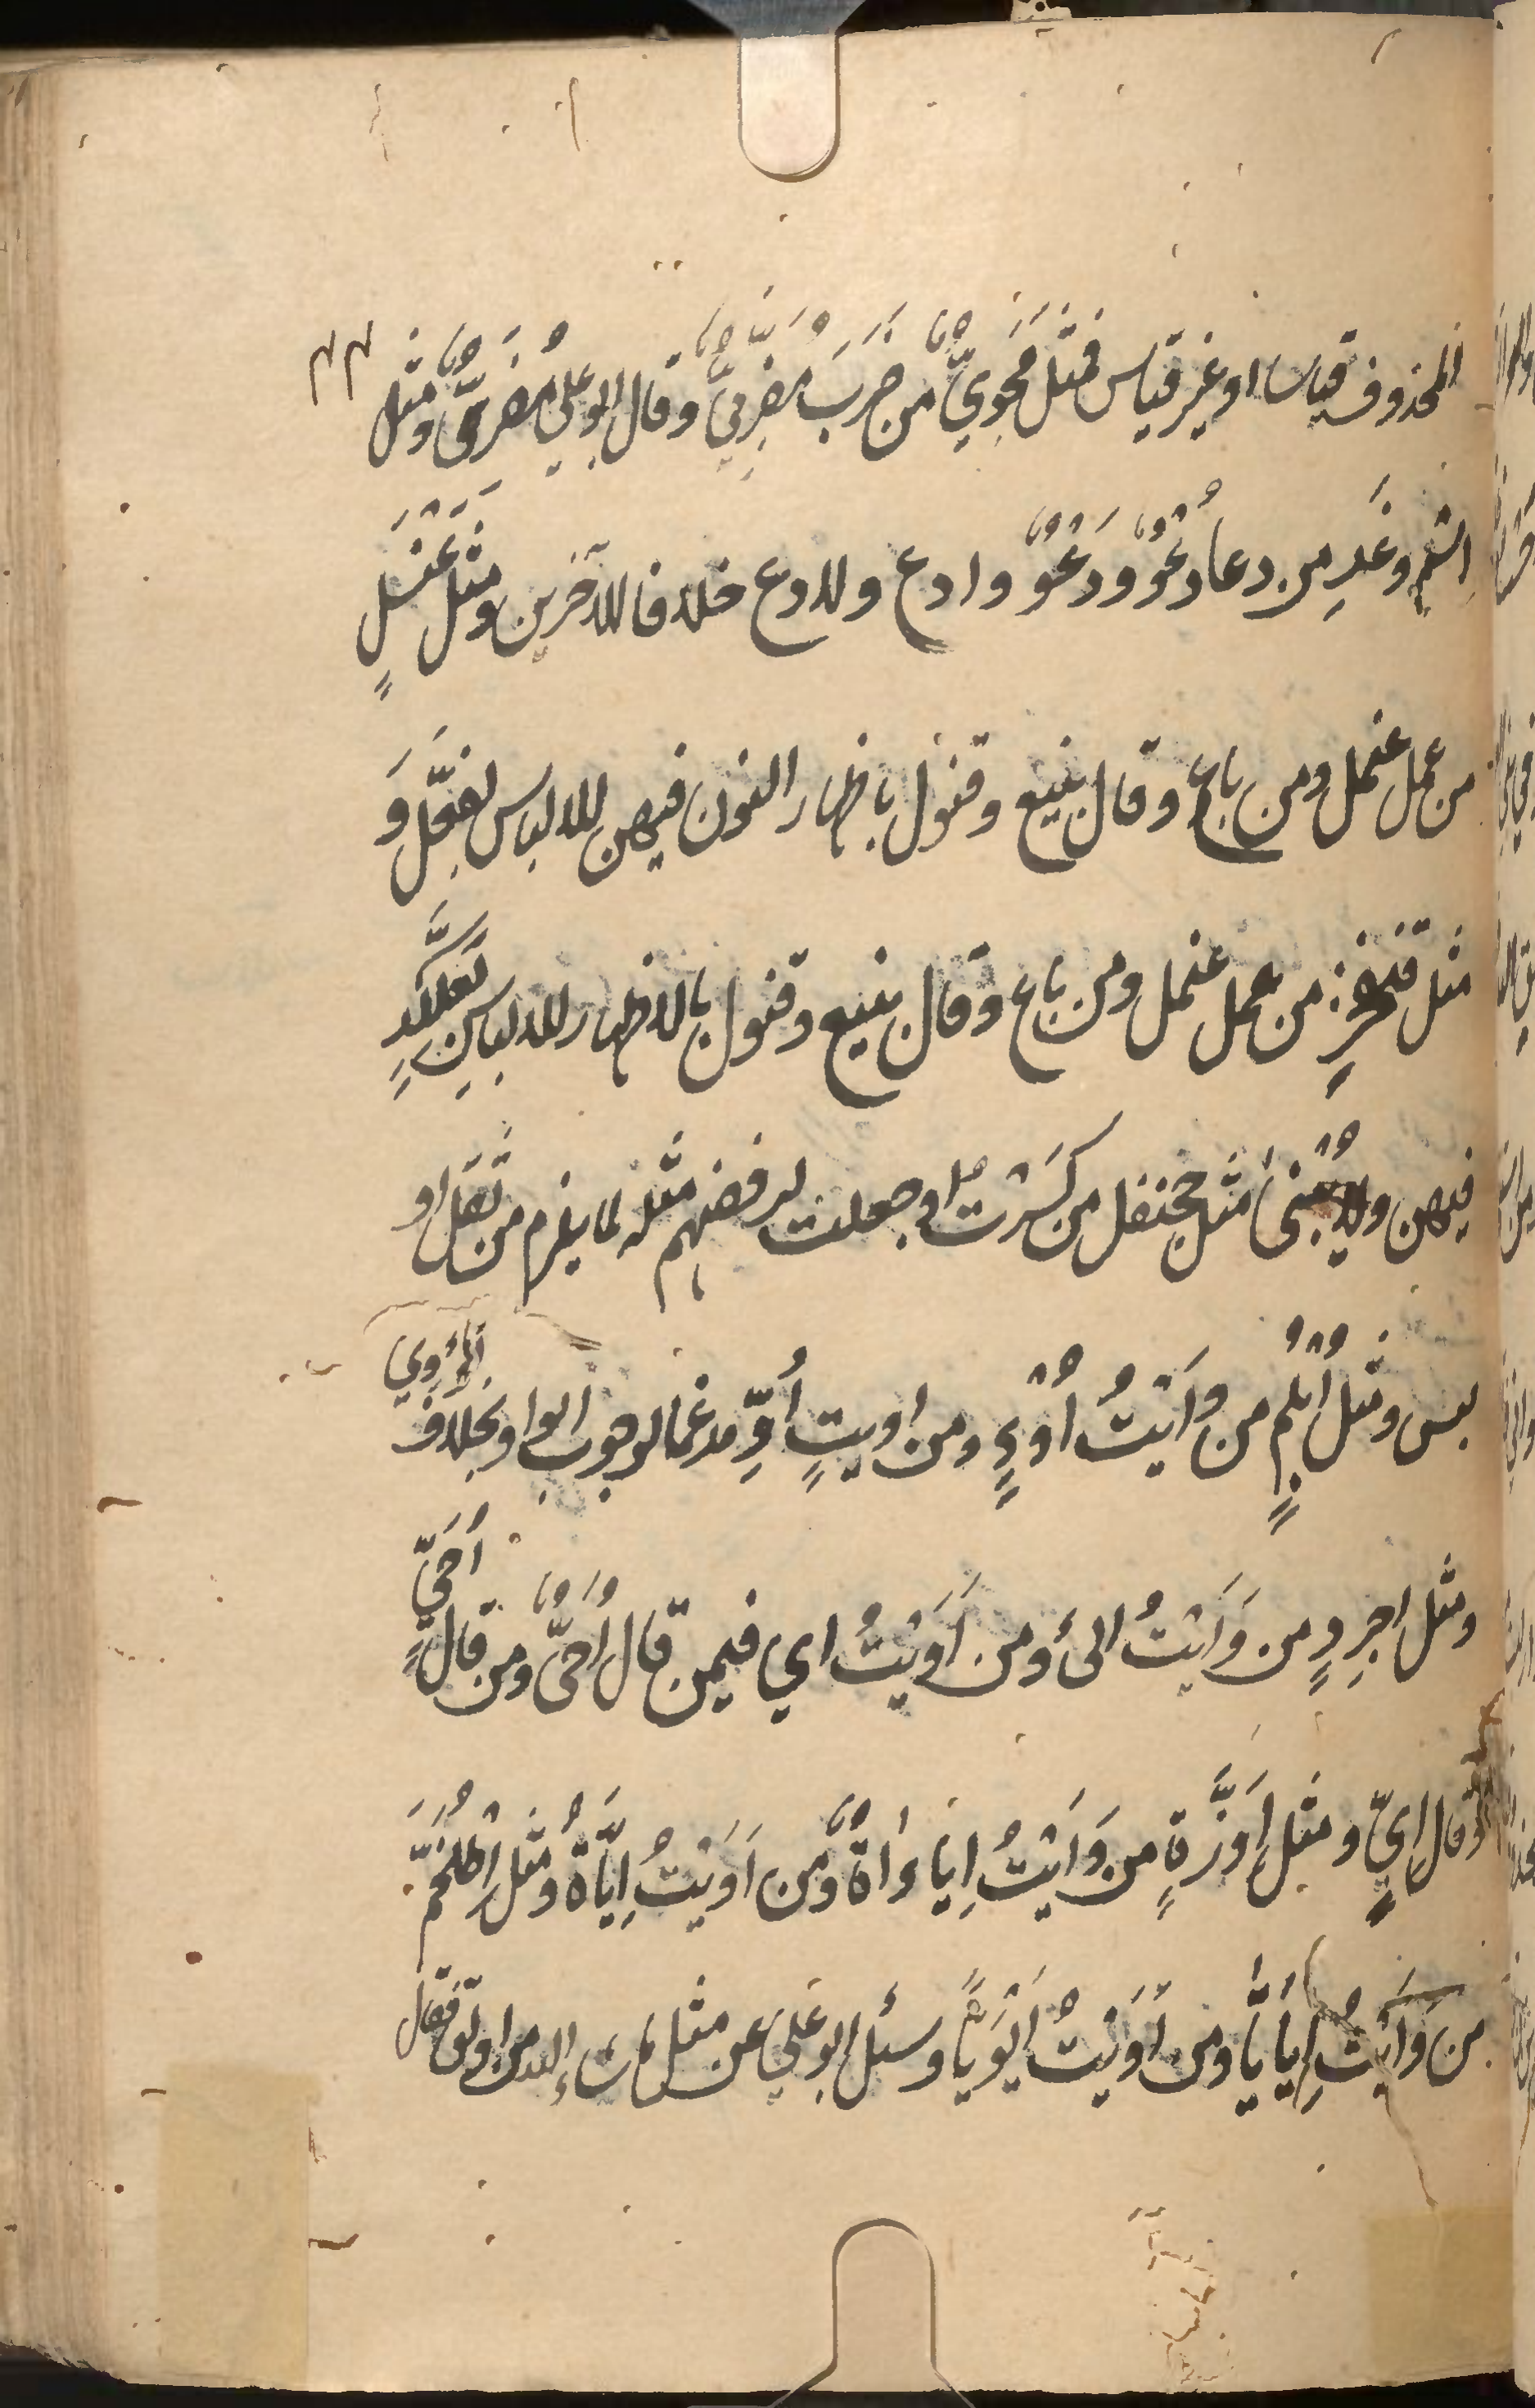 المحذوف قياسا او غير قياس فمثل مُحَوِيٍّ من ضَرَبَ مُضَرِّبِيٌّ وقال ابو علي مُضَرِيٌّ ومثل
اسْمٍ وغَدٍ من دعا دُعْوٌ ودَعْوٌ وادع ولادع خلافا للآخرين ومثل عَنْسَلٍ
من عمل عنمل ومن باع وقال بنيع وقنول باظهار النون فيهن للالباس بفعَّل وَ
مثل قنفخرٍ من عمل عنمل ومن باع وقال بنيع وقنول بالاظهار للالباس بِعَلَّكْدٍ
فيهن ولا يُبْنىٰ مثل جحنفل من كَسَرْتُ او جعلت لرفضهم مثله لما يلزم من ثقل او
لبس ومثل اُبْلُمٍ من وَاَيْتُ اُوْءٍ ومن اويتٍ اُوٍّ مدغما لوجوب الواو بخلاف تُؤْوِي
ومثل اجرِدٍ من وَاَيْتُ ائ ومن اَوَيْتُ اي فيمن قال اُحَيٌّ ومن قال اُحَيٍّ
قال اِيٍّ ومثل اِوَزَّةٍ من وَاَيْتُ اِيئاةٌ ومن اَوَيْتُ اِيَّاةٌ ومثل اِطْلَخَمَّ
من وَاَيْتُ اِيأيَّا ومن اَوَيْتُ اِيْوَيَّا وسئل ابو علي عن مثل ما شاء الله من اولق فقال